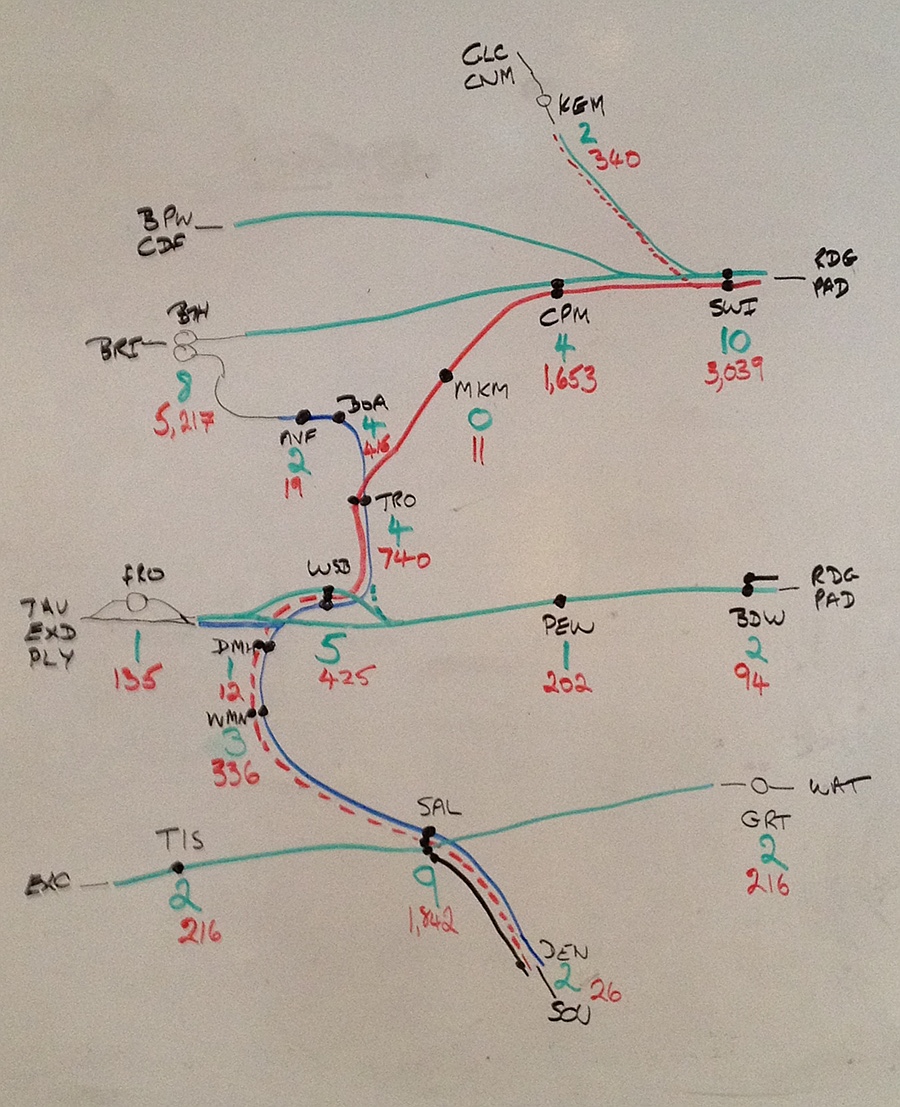 GLC
CNM
KEM
2
340
BPW
CDF
RDG
PAD
SWI
10
3,039
CPM
4
1,653
BTH
BRI
8
5,217
MKM
0
11
BOA
4
416
AVF
2
19
TRO
4
740
WSB
5
425
FRO
1
135
TAU
EXD
PLY
RDG
PAD
BDW
2
94
PEW
1
202
DMH
1
12
WMN
3
336
SAL
9
1,842
WAT
GRT
2
216
TIS
2
216
EXC
DEN
2
26
SOU